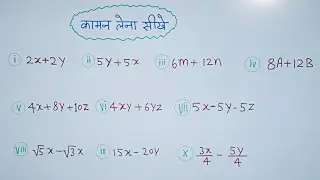 कामन लेना सीखे
i 2x+2y ii 5y+5x iii 6m+12n iv 8A+12B
v 4x+8y+10z vi 4xy+6yz vii 5x-5y-5z
viii √5x-√3x ix 15x-20y x 3x/4 - 5y/4